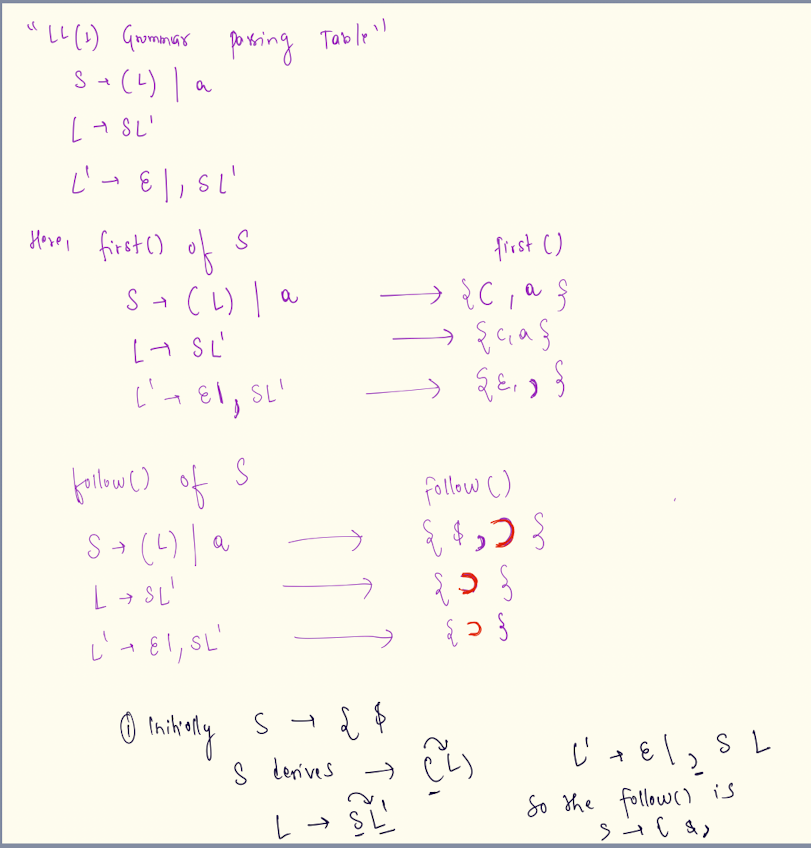 "LL(1) Grammar parsing Table"
S → (L) | a
L → SL'
L' → ε | , SL'
Here, first() of S first ()
S → (L) | a → {(, a}
L → SL' → {(, a}
L' → ε | , SL' → {ε, , }
follow() of S follow()
S → (L) | a → {$, ) }
L → SL' → { ) }
L' → ε | , SL' → { ) }
① Initially S → { $
S derives → (L)
L → SL'
L' → ε | , S L
So the follow() is
S → ( & ,